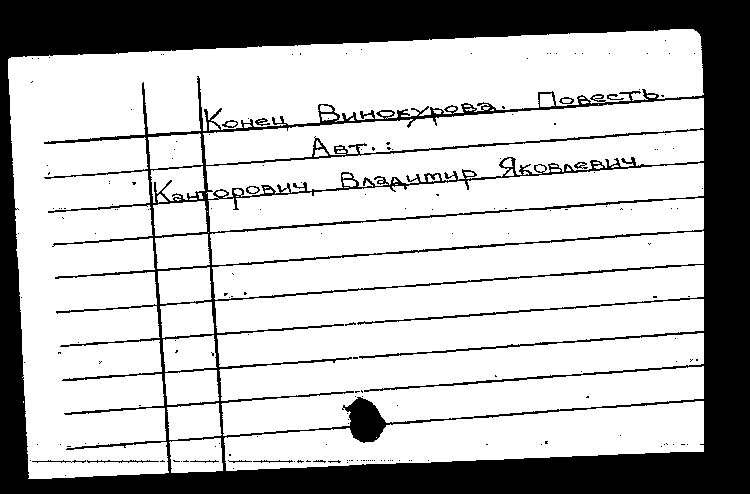 Конец Винокурова. Повесть.
Авт.:
Канторович, Владимир Яковлевич.